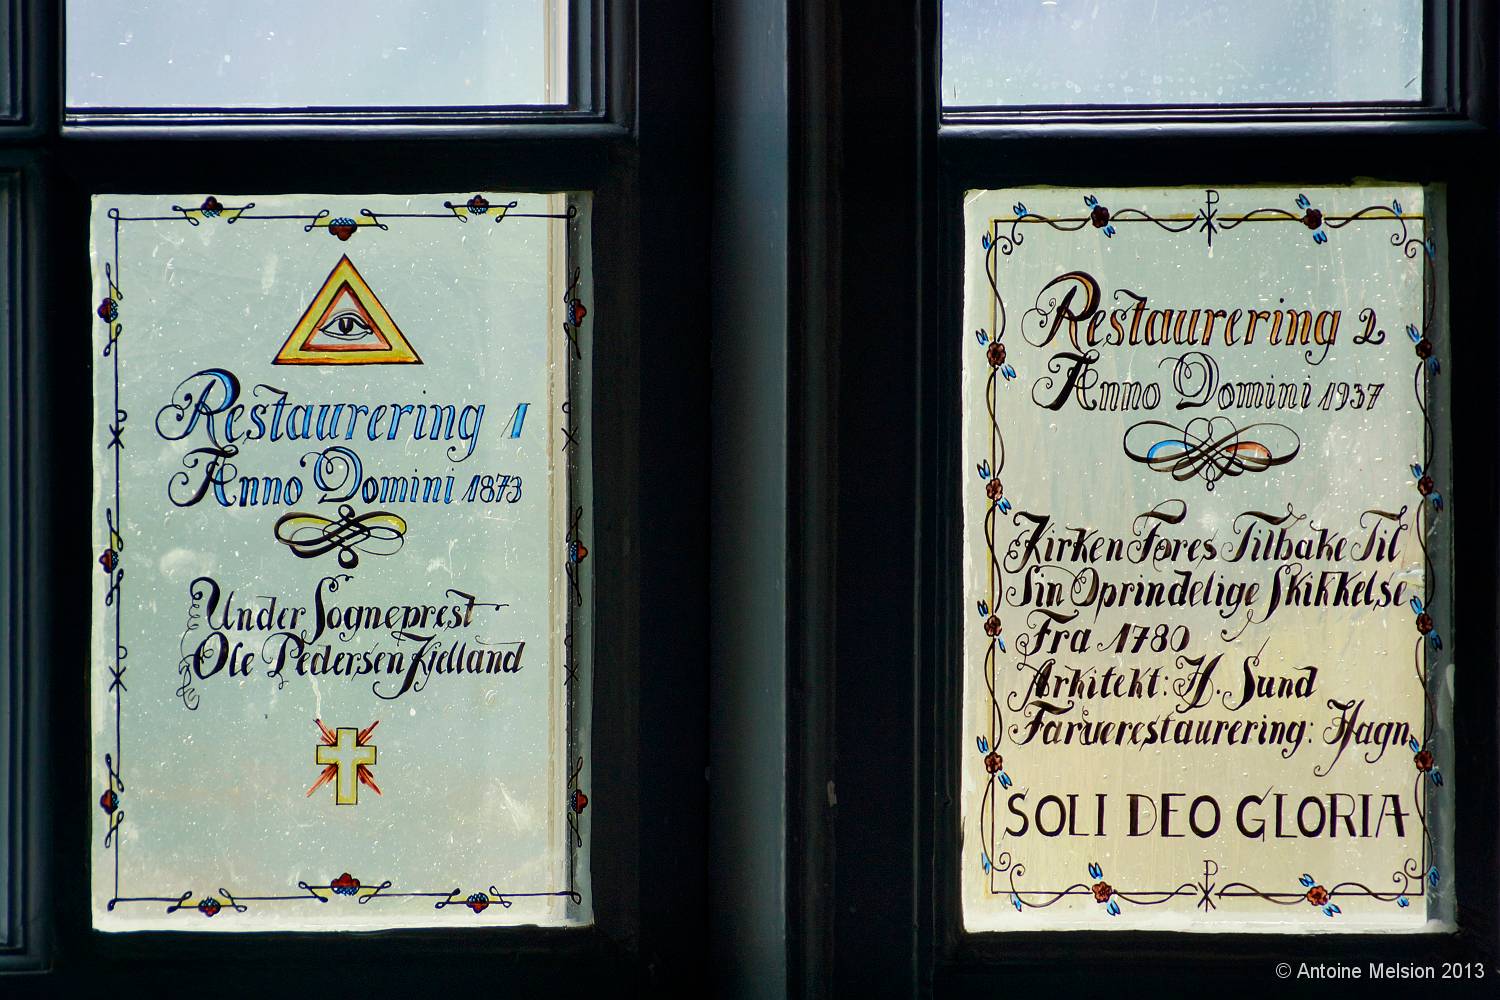 Restaurering 1
Anno Domini 1873
Under Sogneprest
Ole Pedersen Kjelland
Restaurering 2
Anno Domini 1937
Kirken Føres Tilbake Til
Sin Oprindelige Skikkelse
Fra 1780
Arkitekt: H. Sund
Farverestaurering: Hagn,
SOLI DEO GLORIA
© Antoine Melsion 2013